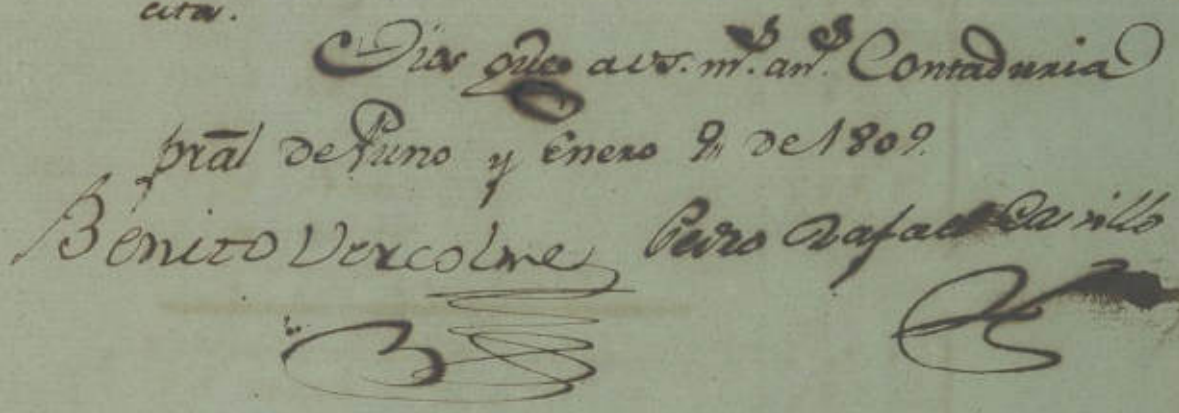 cita.
Dios gūe a V.S. m.s an.s Contaduria
prāl de Puno y Enero 9, de 1809.
Benito Pedro Rafael Castillo